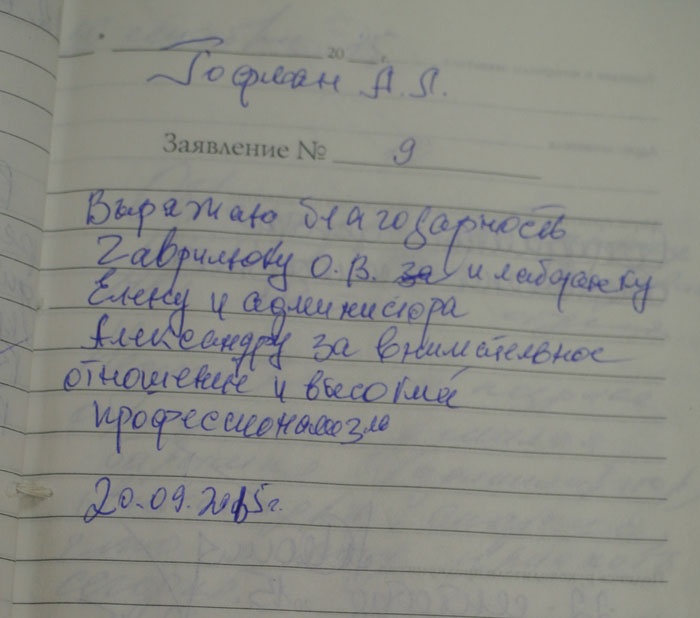 20 г.
Гофман А.Л.
Заявление № 9
Выражаю благодарность
Гаврилюку О.В. за и лаборанку
Елену и админисора
Александру за внимательное
отношение и высокий
профессионализм
20.09.2015г.